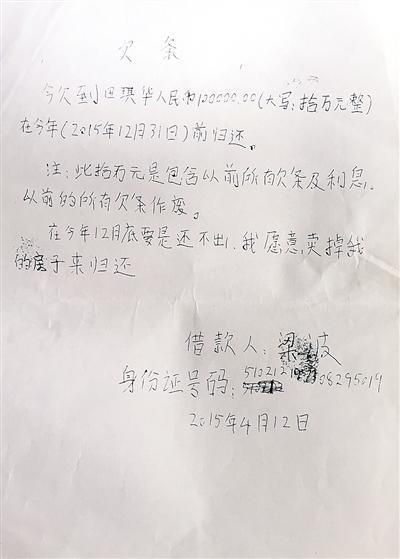 欠条
今欠到田琪华人民币100000.00(大写:拾万元整)
在今年(2015年12月31日)前归还。
注:此拾万元是包含以前所有欠条及利息,
以前的所有欠条作废。
在今年12月底要是还不出,我愿意卖掉我
的房子来归还
借款人:梁波
身份证号码:5102121 08295019
2015年4月12日